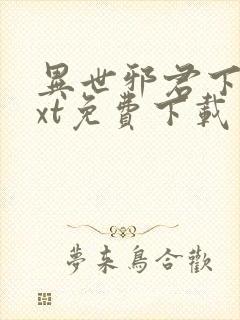 異世邪君下
xt免費下載
夢來鳥合歡